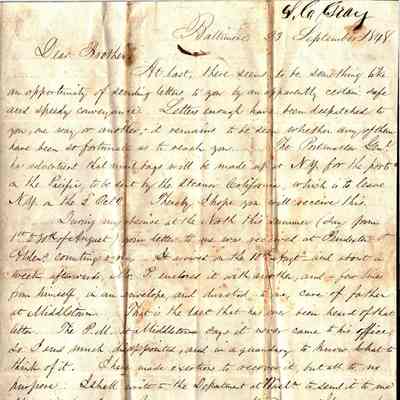 Baltimore 23 September 1848
Dear Brother
At last, there seems to be something like
an opportunity of sending letters to you by an apparently certain safe
and speedy conveyance. Letters enough have been despatched to
you, one way or another; it remains to be seen whether any of them
have been so fortunate as to reach you. The Postmaster Genl.
has advertised that mail bags will be made up at N.Y. for the ports
in the Pacific, to be sent by the Steamer California, which is to leave
N.Y. on the 2d Octr. Thereby I hope you will receive this.
During my absence at the North this summer (day from
1st to 30th of August) your letter to me was received at
counting room. It arrived on the 11th Augt. and about a
week afterwards Mr. P. enclosed it with another, and a few lines
from himself in an envelope, and directed to me, care of father
at Middletown. That is the last that has ever been heard of that
letter. The P.M. at Middletown says it never came to his office,
So I am much disappointed, and in a quandary to know what to
think of it. I have made exertions to recover it, but all to no
purpose. I shall write to the Department at Washn. to send it to me